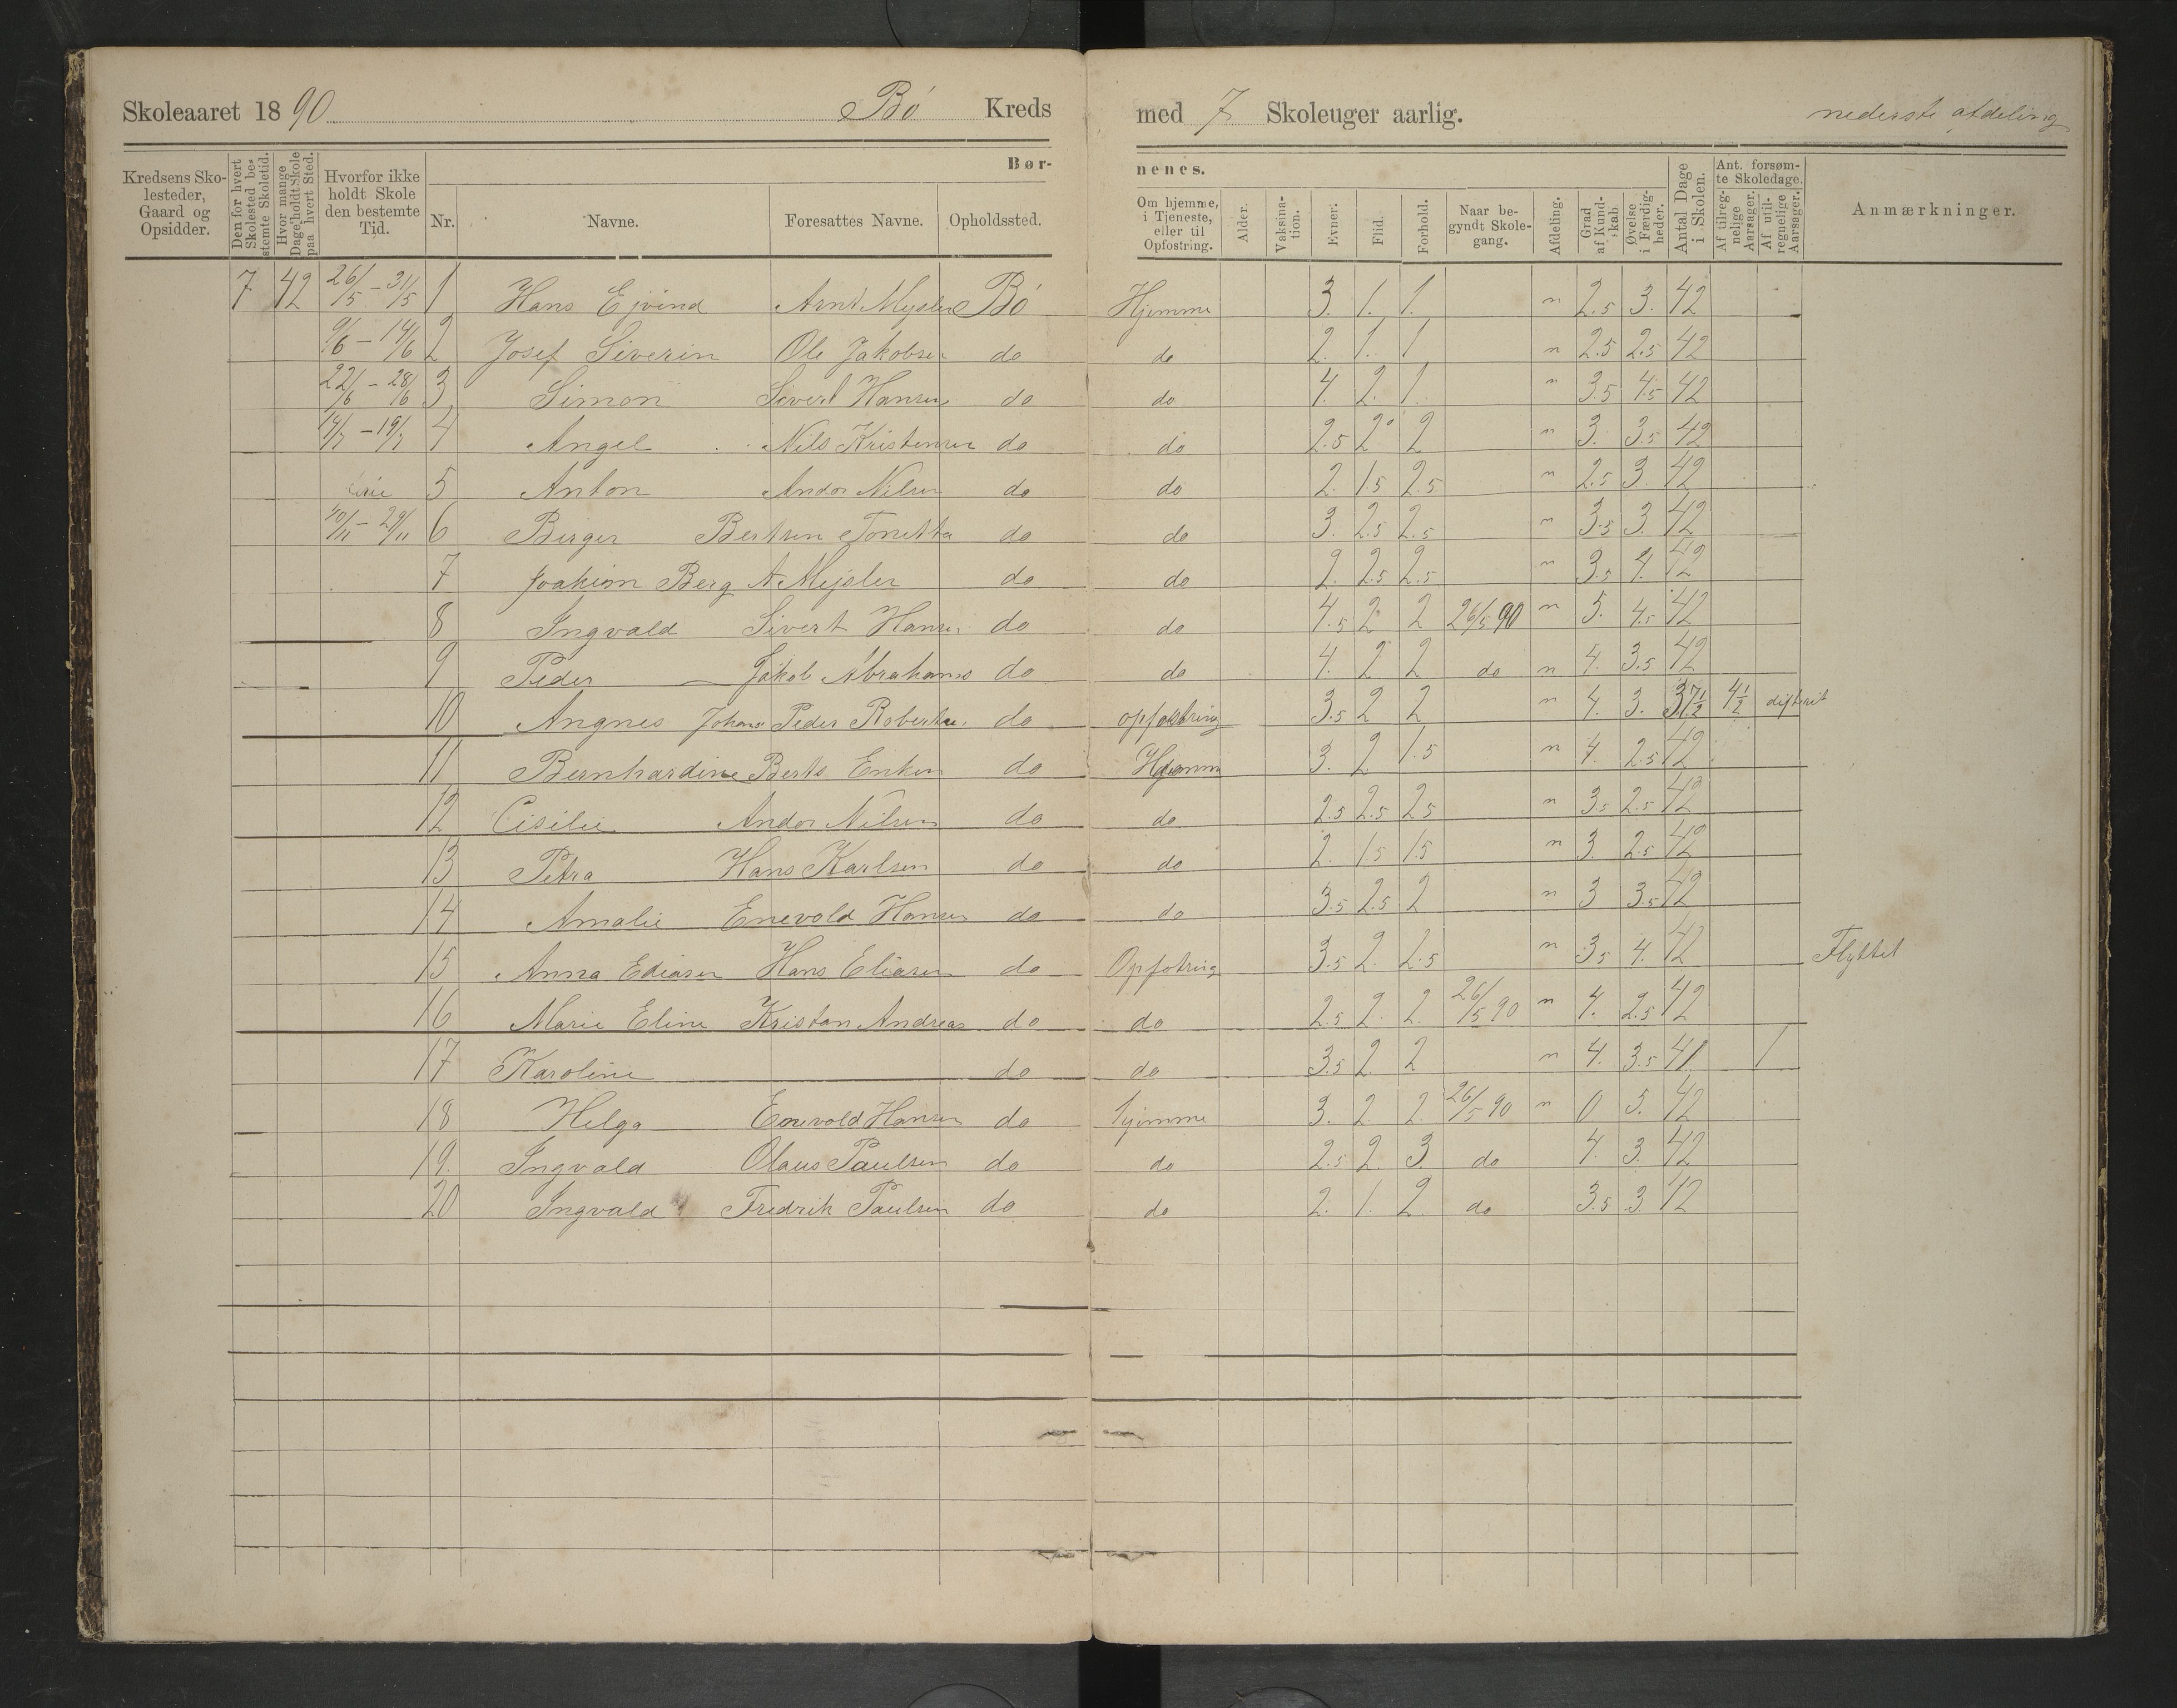 Skoleaaret 1890 Bø Kreds med 7 Skoleuger aarlig. nederste afdeling
Børnenes.
Kredsens Skolesteder, Gaard og Opsidder. Den for hvert Skolested bestemte Skoletid. Hvor mange Dage holdt Skole paa hvert Sted. Hvorfor ikke holdt Skole den bestemte Tid. Nr. Navne. Foresattes Navne. Opholdssted. Om hjemme, i Tjeneste, eller til Opfostring. Alder. Vaksination. Evner. Flid. Forhold. Naar begyndt Skolegang. Afdeling. Grad af Kundskab. Øvelse i Færdigheder. Antal Dage i Skolen. Ant. forsømte Skoledage. Af tilregnelige Aarsager. Af utilregnelige Aarsager. Anmærkninger.
7 42 26/5 – 31/5 1 Hans Ejvind Arnt Mejsler Bø Hjemme 3. 1. 1. n 2.5 3. 42
9/6 – 14/6 2 Josef Siverin Ole Jakobsen do do 2. 1. 1 n 2.5 2.5 42
22/6 – 28/6 3 Simon Sivert Hansen do do 4. 2. 1. n 3.5 4.5 42
14/7 – 19/7 4 Angel Nils Kristensen do do 2.5 2 2 n 3. 3.5 42
5 Anton Andor Nilsen do do 2. 1.5 2.5 n 2.5 3. 42
10/11 – 29/11 6 Birger Bertsen Tonetta do do 3. 2.5 2.5 n 3.5 3. 42
7 Joakim Berg A Mejsler do do 2. 2.5 2.5 n 3.5 4. 42
8 Ingvald Sivert Hansen do do 4.5 2 2 26/5 90 n 5. 4.5 42
9 Peder Jakob Abrahams do do 4. 2 2 do n 4. 3.5 42
10 Angnes Johans Peder Robertsen do opfostring 3.5 2 2 n 4. 3. 37½ 4½ difterit
11 Bernhardine Berts Enken do Hjemme 3. 2 1.5 n 4. 2.5 42
12 Cisilie Andor Nilsen do do 2.5 2.5 2.5 n 3.5 2.5 42
13 Petra Hans Karlsen do do 2. 1.5 1.5 n 3. 2.5 42
14 Amalie Enevold Hansen do do 3.5 2.5 2 n 3 3.5 42
15 Anna Ediasen Hans Eliasen do Opfotring 3.5 2. 2.5 n 3.5 4. 42 Flyttet
16 Marie Eline Kristan Andreas do do 2.5 2. 2. 26/5 90 n 4. 2.5 42
17 Karoline do do 3.5 2 2 n 4. 3.5 41 1
18 Helga Enevold Hansen do hjemme 3. 2 2. 26/5 90 n 0 5. 42
19. Ingvald Olaus Paulsen do do 2.5 2. 3. do 4. 3. 42
20 Ingvald Fredrik Paulsen do do 2. 1. 2 do 3.5 3. 42